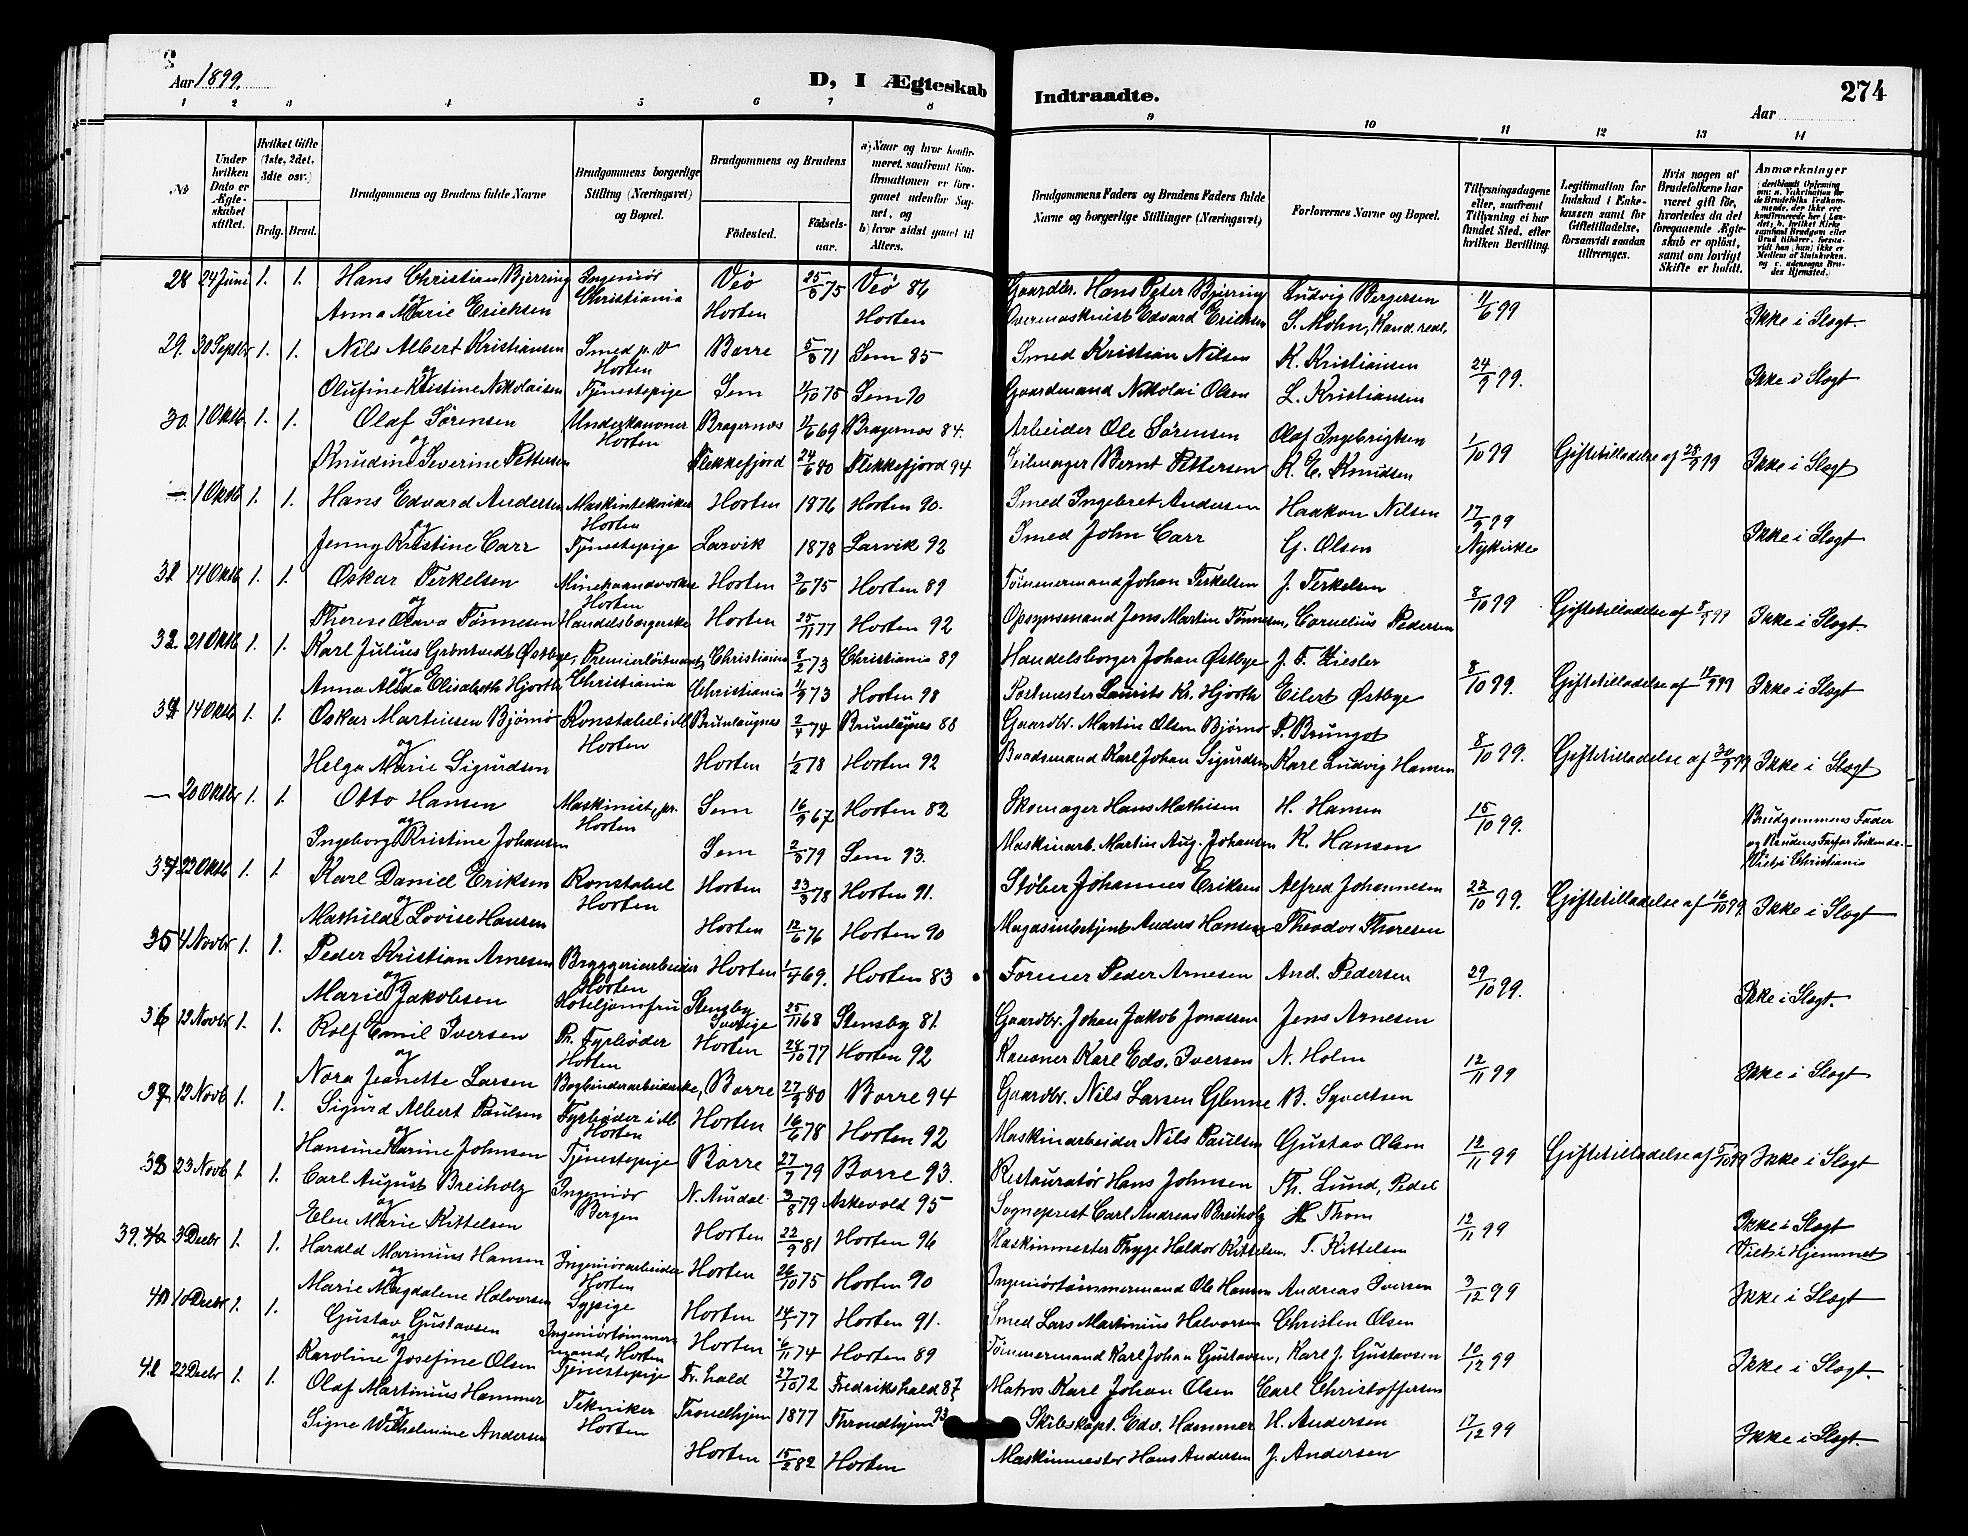 Aar 1899.
D, I Ægteskab
Indtraadte.
274
Aar
1 2 3 4 5 6 7 8 9 10 11 12 13 14
No
Under hvilken Dato er Ægteskabet stiftet.
Hvilket Gifte (1ste, 2det, 3die osv.)
Brdg. Brud.
Brudgommens og Brudens fulde Navne
Brudgommens borgerlige Stilling (Næringsvei) og Bopæl.
Brudgommens og Brudens
Fødested.
Fødselsaar.
a) Naar og hvor konfirmeret, saafremt Konfirmationen er foregaaet udenfor Sognet, og b) hvor sidst gaaet til Alters.
Brudgommens Faders og Brudens Faders fulde Navne og borgerlige Stillinger (Næringsvei)
Forlovernes Navne og Bopæl.
Tillysningsdagene eller, saafremt Tillysning ei har fundet Sted, efter hvilken Bevilling.
Legitimation for Indskud i Enkekassen samt for Giftetilladelse, forsaavidt saadan tiltrænges.
Hvis nogen af Brudefolkene har været gift før, hvorledes da det foregaaende Ægteskab er opløst, samt om lovligt Skifte er holdt.
Anmærkninger
28 24 Juni 1. 1. Hans Christian Bjerring Ingeniør Christiania Veø 75 Veø 86 Gaardbr. Hans Peter Bjerring Ludvig Bergersen 11/6 99
og Anna Marie Erichsen Horten Horten Overmaskinist Edvard Erichsen S. Mohn, Kand. real. Ikke i Slægt.
29. 30 Septbr 1. 1. Nils Albert Kristiansen Smed p. V Horten Borre 71 Sem 85 Smed Kristian Nilsen K. Kristiansen 24/9 99.
og Olufine Kristine Nikolaisen Tjenestepige Sem 75 Sem 90 Gaardmand Nikolai Olsen L. Kristiansen Ikke i Slægt
30. 1 Oktb. 1. 1. Olaf Sørensen Underkanoner Horten Bragernæs 11/6 69 Bragernæs 84. Arbeider Ole Sørensen Olaf Ingebrigtsen 1/10 99 Giftetilladelse af 28/9 99
og Knudine Severine Pettersen Flekkefjord 24/6 80 Flekkefjord 94 Seilmager Bernt Pettersen K. E. Knudsen Ikke i Slægt
— 1 Oktb 1. 1. Hans Edvard Andersen Maskintekniker Horten Horten 1876 Horten 90. Smed Ingebret Andersen Haakon Nilsen 17/9 99 Nykirke
og Jenny Kristine Carr Tjenestepige Larvik 1878 Larvik 92 Smed John Carr G. Olsen Ikke i Slægt
31 14 Oktb 1. 1. Oskar Terkelsen Minehaandværker Horten Horten 75 Horten 89 Tømmermand Johan Terkelsen J. Terkelsen 8/10 99 Giftetilladelse af
og Therese Olava Tønnesen Handelsborgerske Horten 25/11 77 Horten 92 Opsynsmand Jens Martin Tønnesen, Cornelius Pedersen Ikke i Slægt.
32. 21 Oktb 1. 1. Karl Julius Grøntvedt Østbye, Premierløitnant, Christiania Christiania 8/2 73 Christiania 89 Handelsborger Johan Østbye J. F. Ziesler 8/10 99. Giftetilladelse af
og Anna Alvda Elisabeth Hjorth Christiania 73 Horten 98 Postmester Laurits Kr. Hjorth Eilert Østbye Ikke i Slægt
33 14 Oktb 1. 1. Oskar Martinsen Bjørnø Konstabel i M Horten Brunlaugnes 2/4 74 Brunlagnes 88 Gaardbr. Martin Olsen Bjørnø P. Brungot 8/10 99. Giftetilladelse af 30/9 99
og Helga Marie Sigurdsen Horten 1/2 78 Horten 92 Baadsmand Karl Johan Sigurdsen Karl Ludvig Hansen Ikke i Slægt
— 20 Oktbr 1. 1. Otto Hansen Maskinist, pr. Horten Sem 16/9 67 Horten 82 Skomager Hans Mathisen H. Hansen 15/10 99. Brudgommens Fader og Brudens Farfar Søskende.
og Ingeborg Kristine Johansen Sem 79 Sem 93. Maskinarb. Martin Aug. Johansen K. Hansen Viet i Christiania
34 22 Oktb 1. 1. Karl Daniel Eriksen Konstabel Horten Horten 23/3 78 Horten 91. Støber Johannes Eriksen Alfred Johannesen 22/10 99. Giftetilladelse af 16/10 99. Ikke i Slægt
og Mathilde Lovise Hansen Horten 12/6 76 Horten 90 Magasinbetjent Anders Hansen Theodor Thoresen
35 4 Novbr 1. 1. Peder Kristian Arnesen Bryggeriarbeider Horten Horten 1/4 69. Horten 83 Former Peder Arnesen And. Pedersen 29/10 99.
og Marie Jakobsen Hoteljomfru Stensby Sverige 25/11 68 Stensby 81. Gaardbr. Johan Jakob Jonassen Jens Arnesen Ikke i Slægt.
36 12 Novbr 1. 1. Rolf Emil Iversen Ph. Fyrbøder Horten Horten 28/10 77 Horten 92 Kanoner Karl Edv. Iversen N. Holm 12/11 99
og Nora Jeanette Larsen Bogbinderarbeiderske, Borre 80 Borre 94 Gaardbr. Nils Larsen Glenne B. Syvertsen Ikke i Slægt
37 12 Novb 1. 1. Sigurd Albert Paulsen Fyrbøder i M Horten Horten 16/6 78 Horten 92 Maskinarbeider Nils Paulsen Gustav Olsen 12/11 99 Giftetilladelse af
og Hansine Karine Johnsen Tjenestepige Borre 27/7 79 Borre 93. Restauratør Hans Johnsen Th. Lund, Pedel Ikke i Slægt
38 23 Novb 1. 1. Carl August Breiholz Ingeniør Bergen N. Audal 3/8 79 Askevold 95 Sogneprest Carl Andreas Breiholz H Thom 12/11 99 Ikke i Slægt
og Elen Marie Kittelsen Horten 22/9 81 Horten 96 Maskinmester Thyge Haldor Kittelsen, T. Kittelsen Viet i Hjemmet
39. 3 Decbr 1. 1. Harald Marinius Hansen Ingeniørarbeider Horten Horten 26/10 75 Horten 90 Ingeniørtømmermand Ole Hansen Andreas Iversen 3/12 99 Ikke i Slægt
og Marie Magdalene Halvorsen Sypige Horten 77 Horten 91. Smed Lars Martinius Halvorsen Christen Olsen
40 10 Decbr 1. 1. Gustav Gustavsen Ingeniørtømmermand, Horten Horten 6/11 74 Horten 89 Tømmermand Karl Johan Gustavsen, Karl J. Gustavsen 10/12 99
og Karoline Josefine Olsen Tjenestepige Fr. hald 27/10 72 Fredrikshald 87 Matros Karl Johan Olsen Carl Christoffersen Ikke i Slægt.
41 22 Decbr 1. 1. Olaf Martinius Hammer Tekniker Horten Trondhjem 1877 Throndhjem 93 Skibskapt. Edv. Hammer H. Andersen 17/12 99
og Signe Wilhelmine Andersen Horten 15/2 82 Horten Maskinmester Hans Andersen J. Andersen Ikke i Slægt.